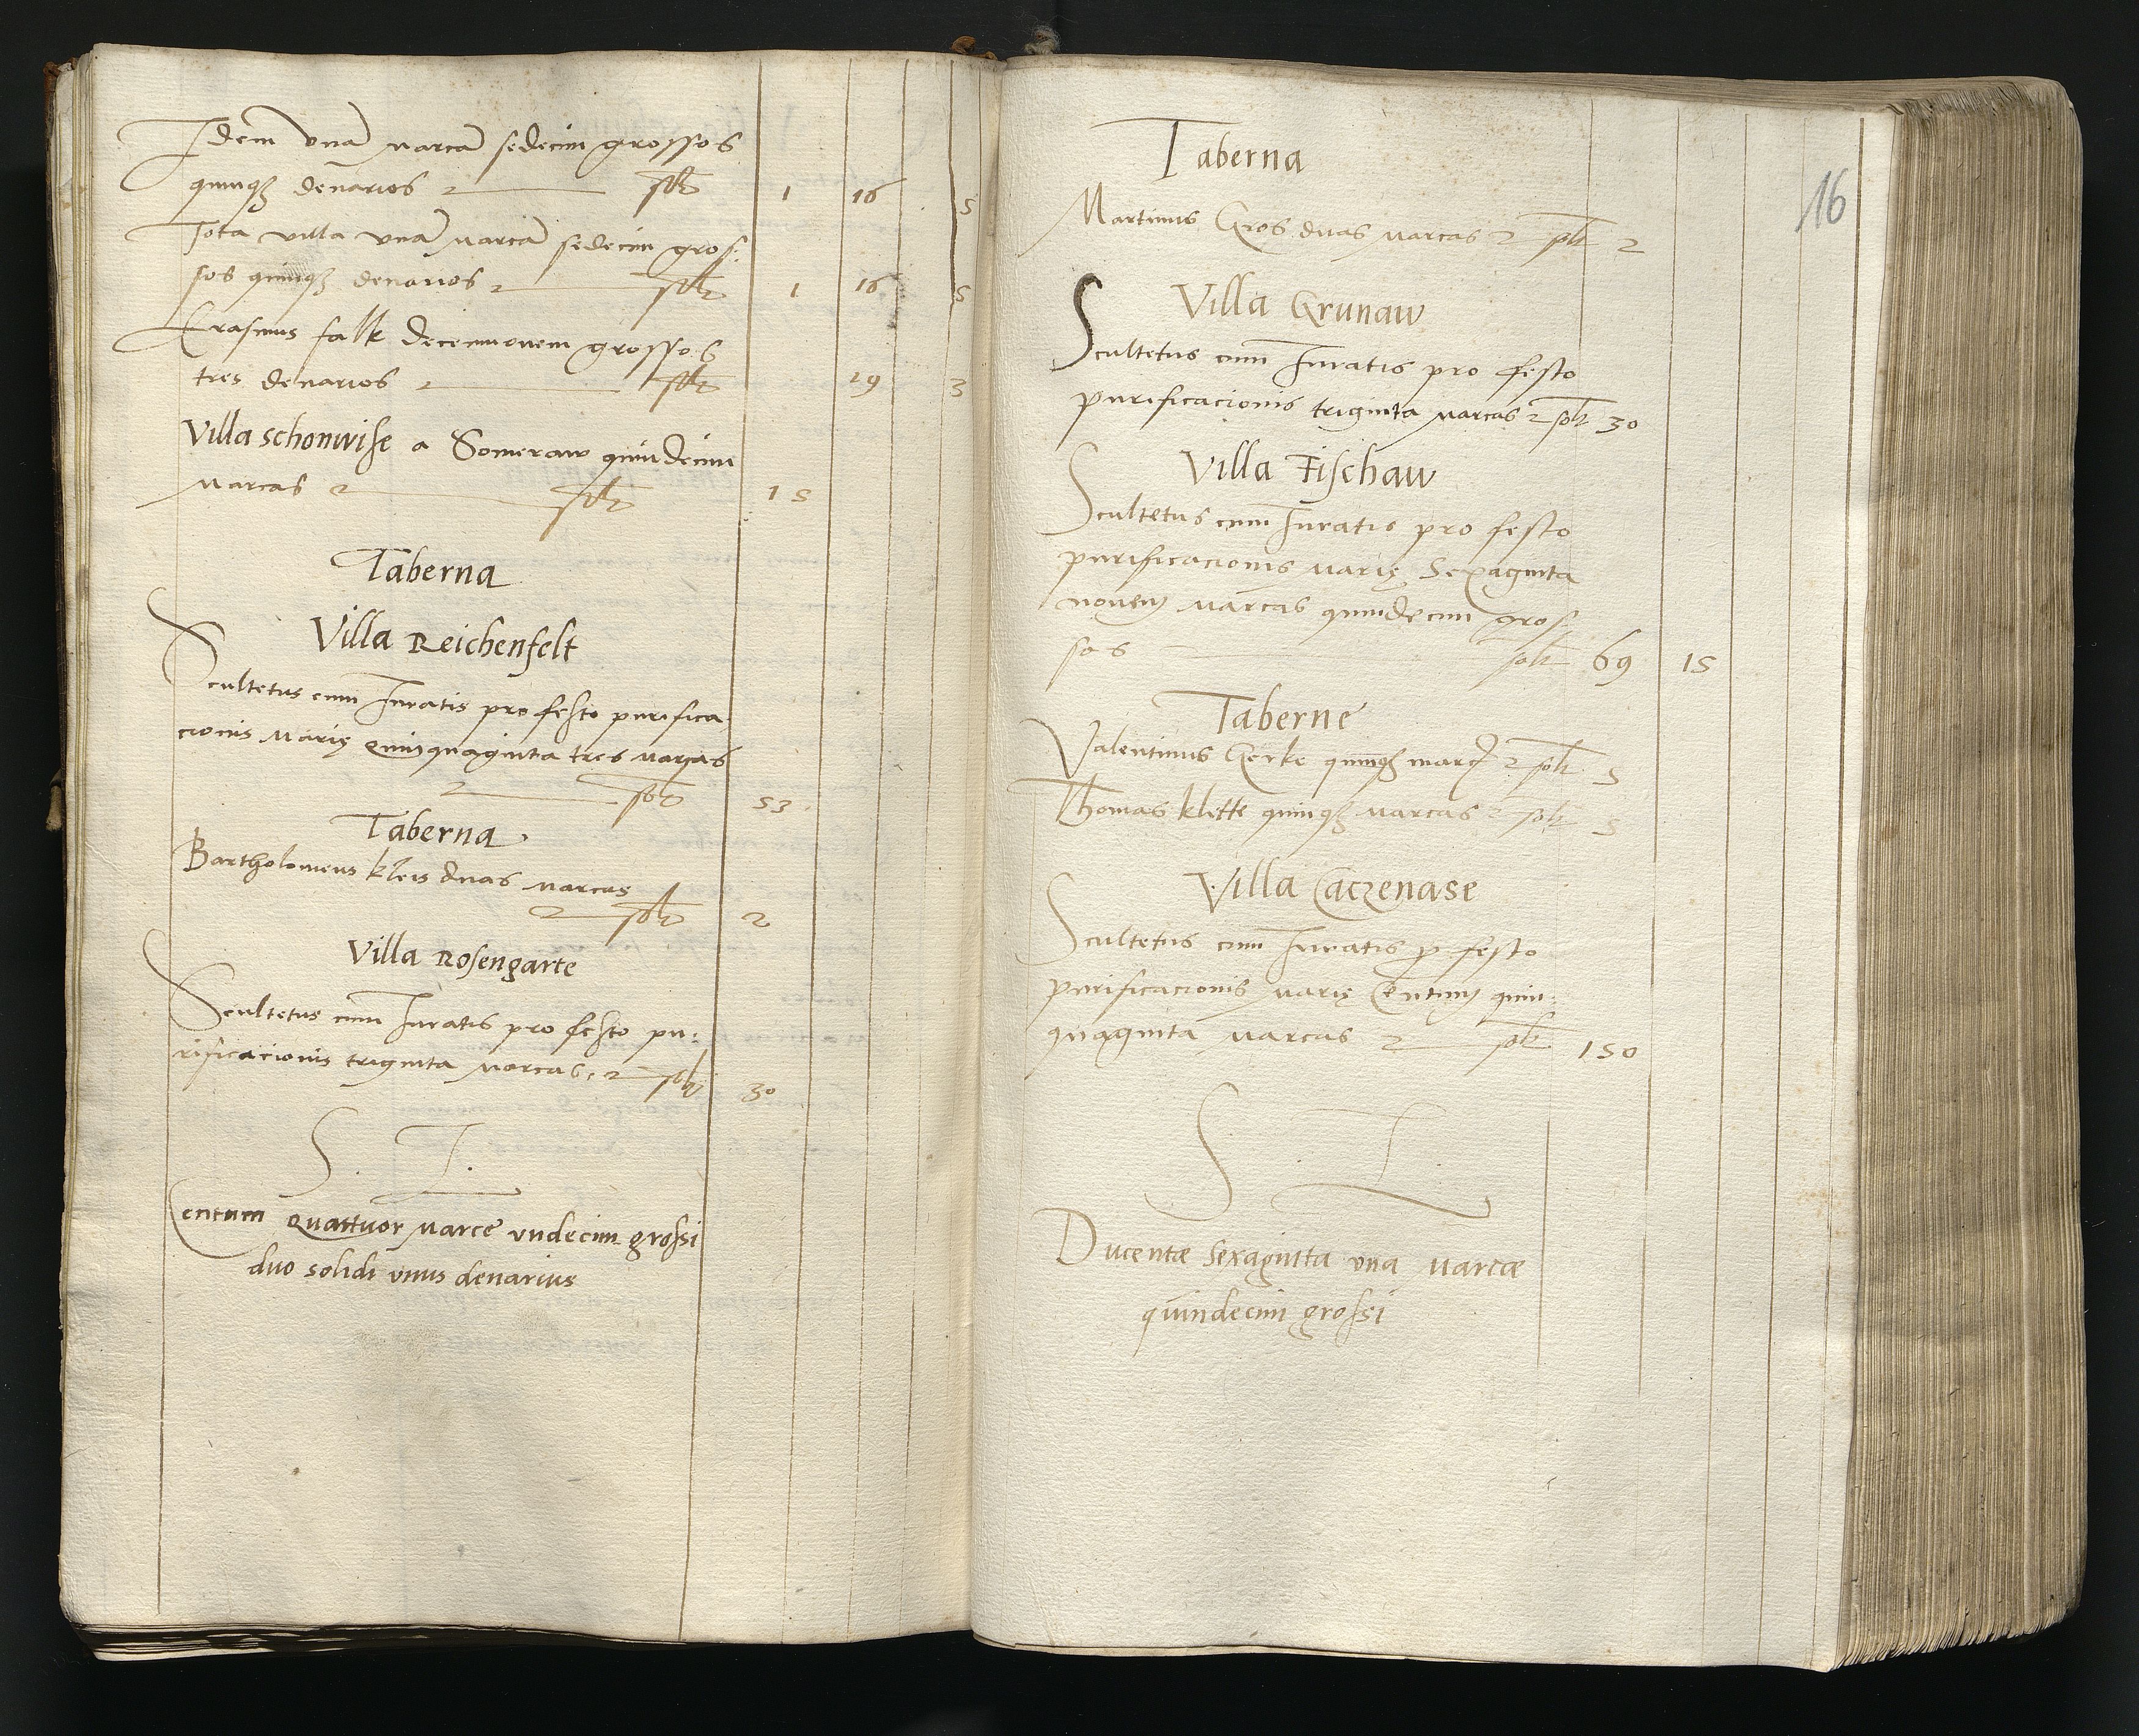 Idem unā marcā sedecim grossos
quinqȝ denarios solt 1 16 5
Tota villa unā marcā sedecim gros:
sos quinqȝ denarios solt 1 16 5
Erasmus falk decemnovem grossos
tres denarios solt 19 3
Villa schonwise a Someraw quindecim
marcas solt 15
Taberna
Villa Reichenfelt
Scultetus cum Juratis pro festo purifica
cionis Marię Quinquaginta tres marcas
solt 53
Taberna
Bartholomeus kleis duas marcas
solt 2
Villa Rosengarte
Scultetus cum Juratis pro festo pu:
rificacionis triginta marcas. solt 30
S. L.
Centum Quattuor marce undecim grossi
duo solidi unus denarius
16
Taberna
Martinus Gros duas marcas solt 2
Villa Grunaw
Scultetus cum Juratis pro festo
purificacionis triginta marcas solt 30
Villa Fischaw
Scultetus cum Juratis pro festo
purificacionis Marię Sexaginta
novem marcas quindecim gros
sos solt 69 15
Taberne
Valentinus Gerke quinqȝ marc solt 5
Thomas klitte quinqȝ marcas solt 5
Villa Caczenase
Scultetus cum Juratis p festo
purificacionis Marię Centum quin:
quaginta marcas solt 150
S. L.
Ducentæ sexaginta una marcæ
quindecim grossi